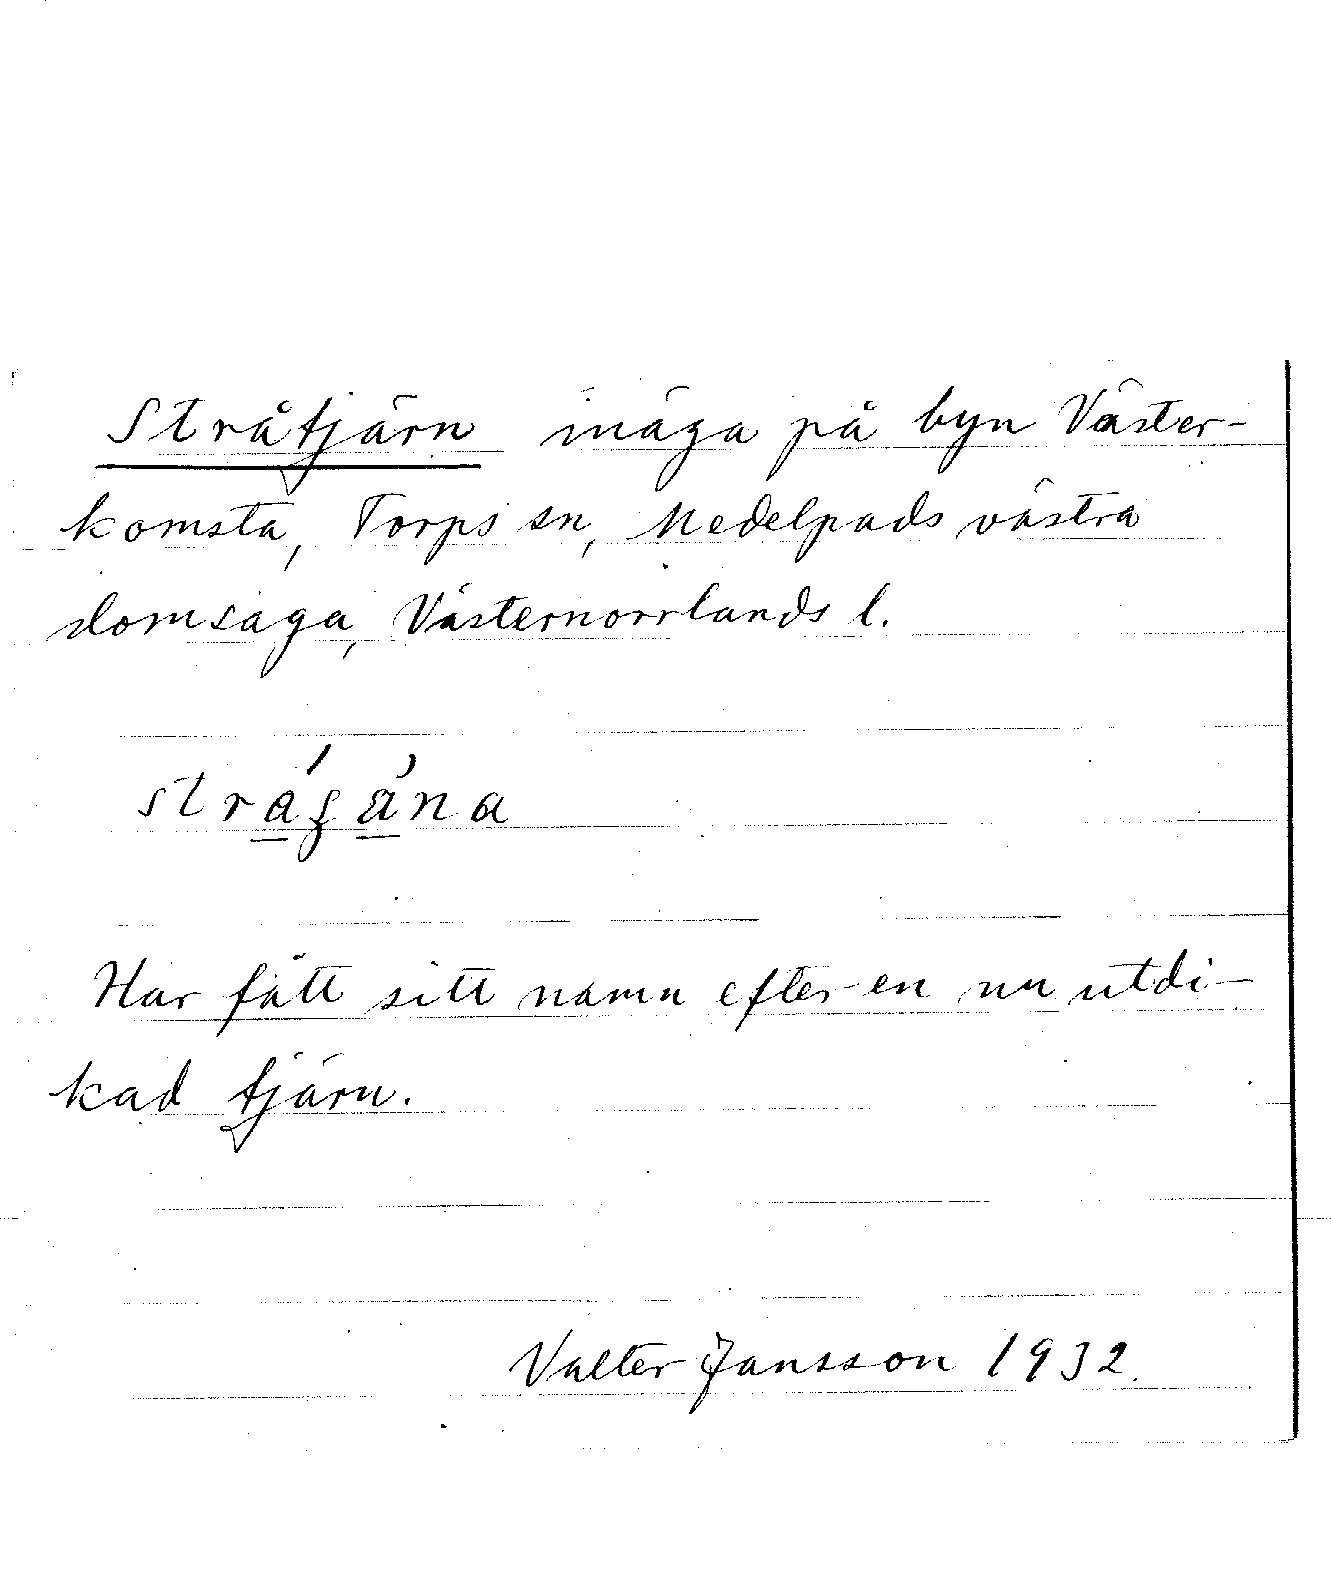 Stråtjärn inäga på byn Väster-
komsta, Torps sn, Medelpads västra
domsaga, Västernorrlands l.
Har fått sitt namn efter en nu utdi-
kad tjärn.
Valter Jansson 1932.